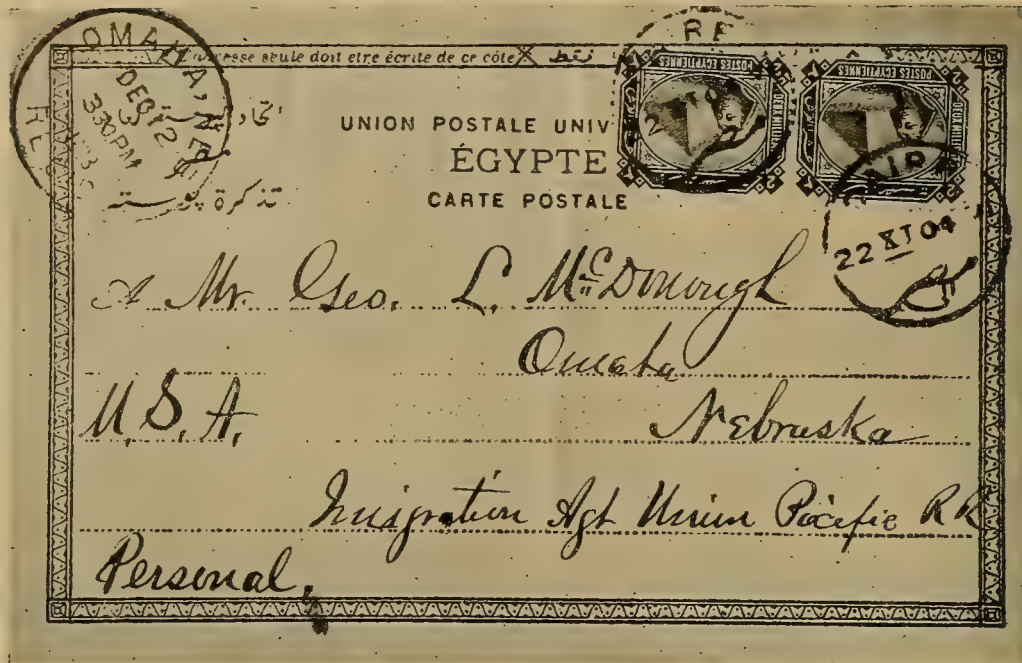 OMAHA, NE
DEC 12
330PM
RE
dresse seule doit etre écrite de ce côté
RE
UNION POSTALE UNIV
ÉGYPTE
CARTE POSTALE
تذكرة بوستة
POSTES EGYPTIENNES
POSTES EGYPTIENNES
22 XI 04
A Mr. Geo. L. McDonough
Omaha
U.S.A. Nebraska
Imigration Agt Union Pacific RR
Personal,